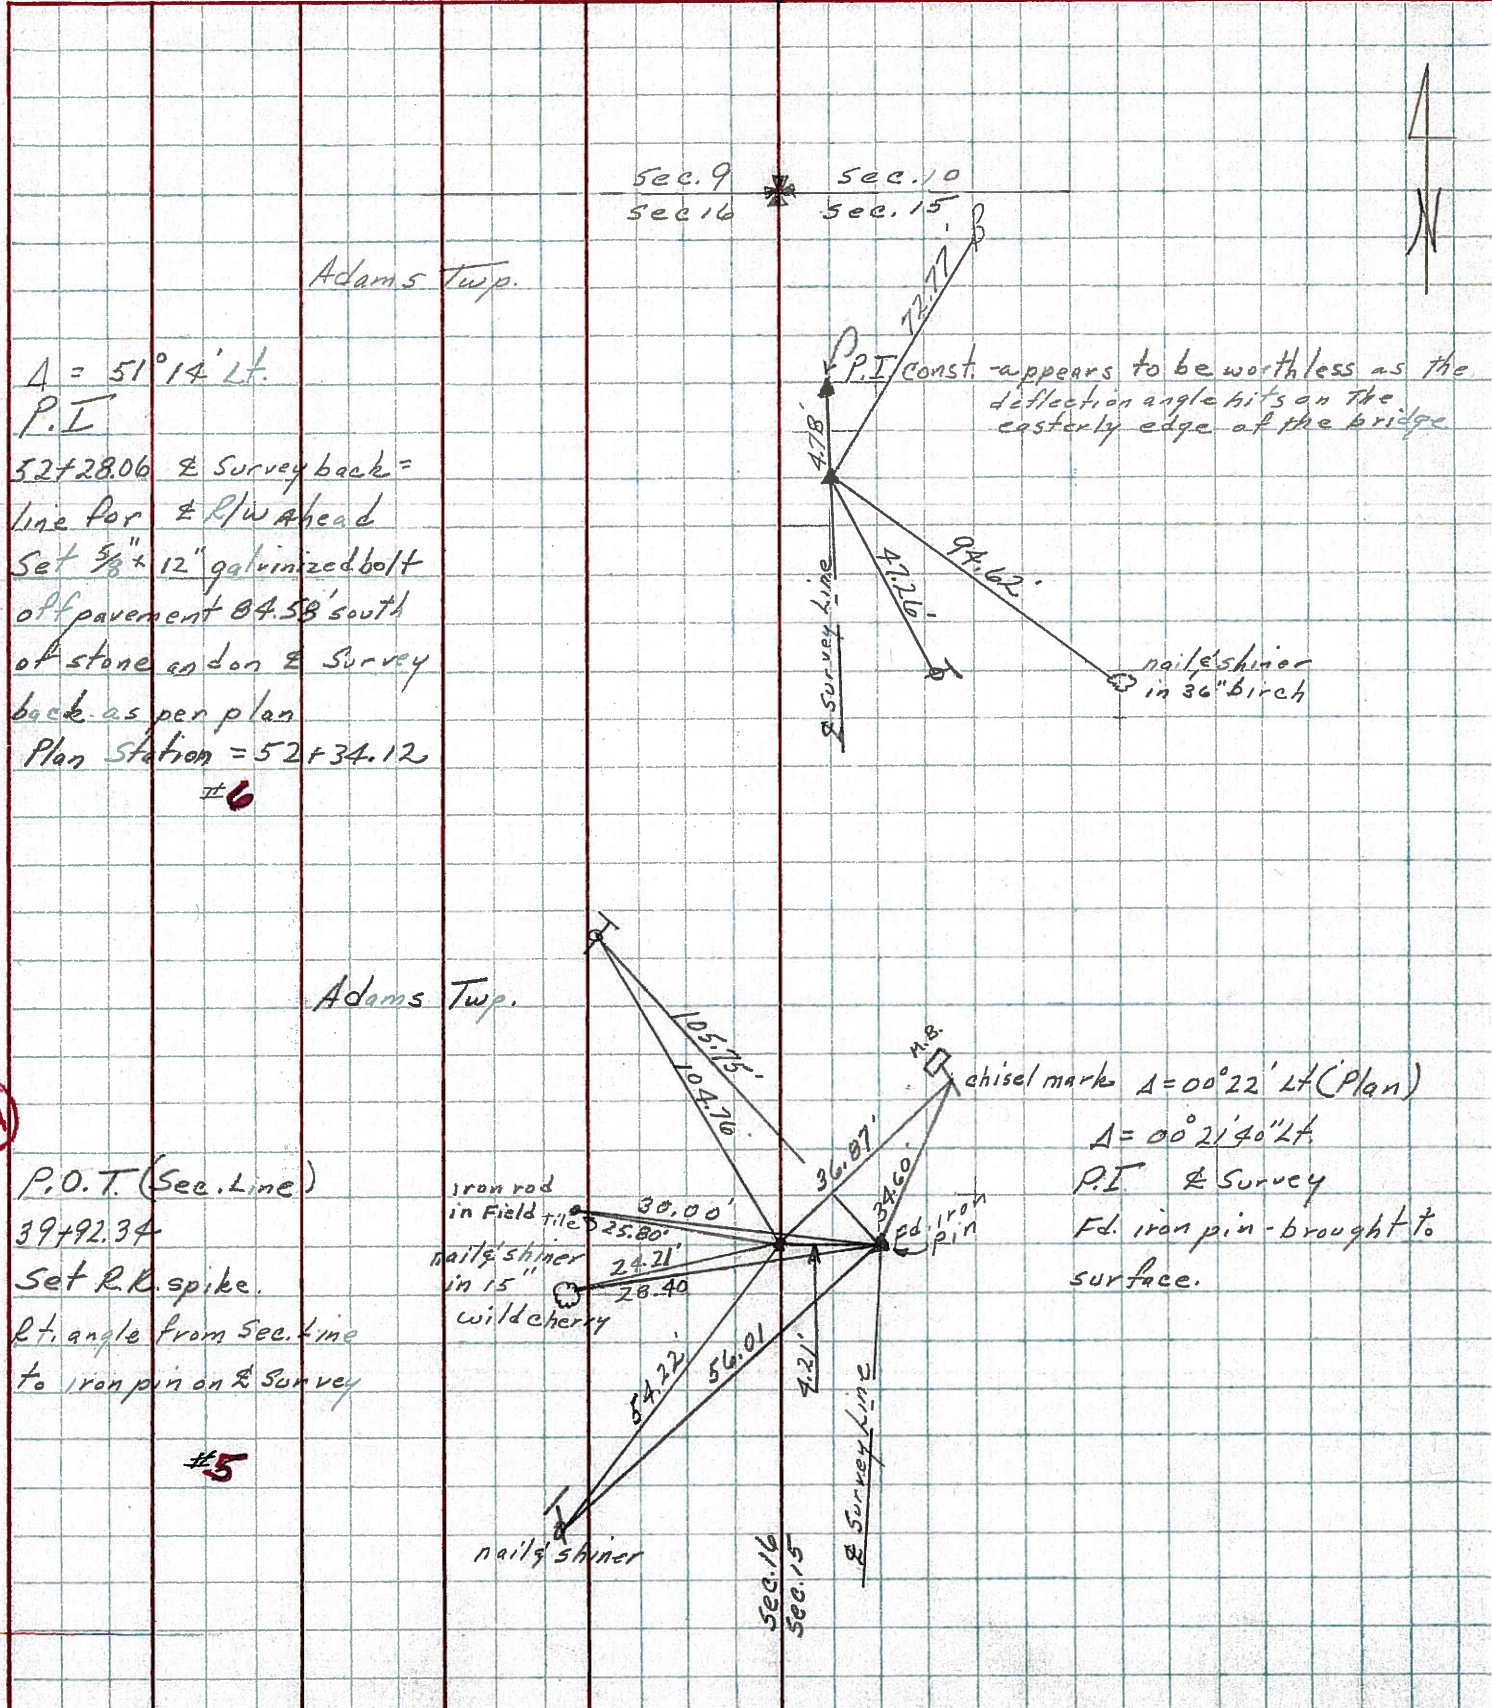 Sec. 9
Sec. 10
Sec 16
Sec. 15
N
Adams Twp.
72.77'
Δ = 51°14' Lt.
P.I
52+28.06 ℄ Survey back =
line for ℄ R/W Ahead
Set 5/8" x 12" galvinized bolt
off pavement 84.58' south
of stone and on ℄ Survey
back as per plan
Plan Station = 52+34.12
#6
P.I const. - appears to be worthless as the
deflection angle hits on the
easterly edge of the bridge
4.78'
47.26'
94.62'
℄ Survey Line
nail & shiner
in 36" birch
Adams Twp.
105.75'
104.76
M.B.
chisel mark
Δ = 00°22' Lt (Plan)
Δ = 00°21'40" Lt.
P.I ℄ Survey
Fd. iron pin - brought to
surface.
P.O.T. (Sec. Line)
39+92.34
Set R.R. spike.
Rt. angle from Sec. Line
to iron pin on ℄ Survey
#5
36.87'
34.60'
iron rod
in Field Tile
30.00'
25.80'
nail & shiner
in 15"
wild cherry
24.21'
28.40
Fd. iron
pin
54.22'
56.01
4.21'
℄ Survey Line
nail & shiner
Sec. 16
Sec. 15